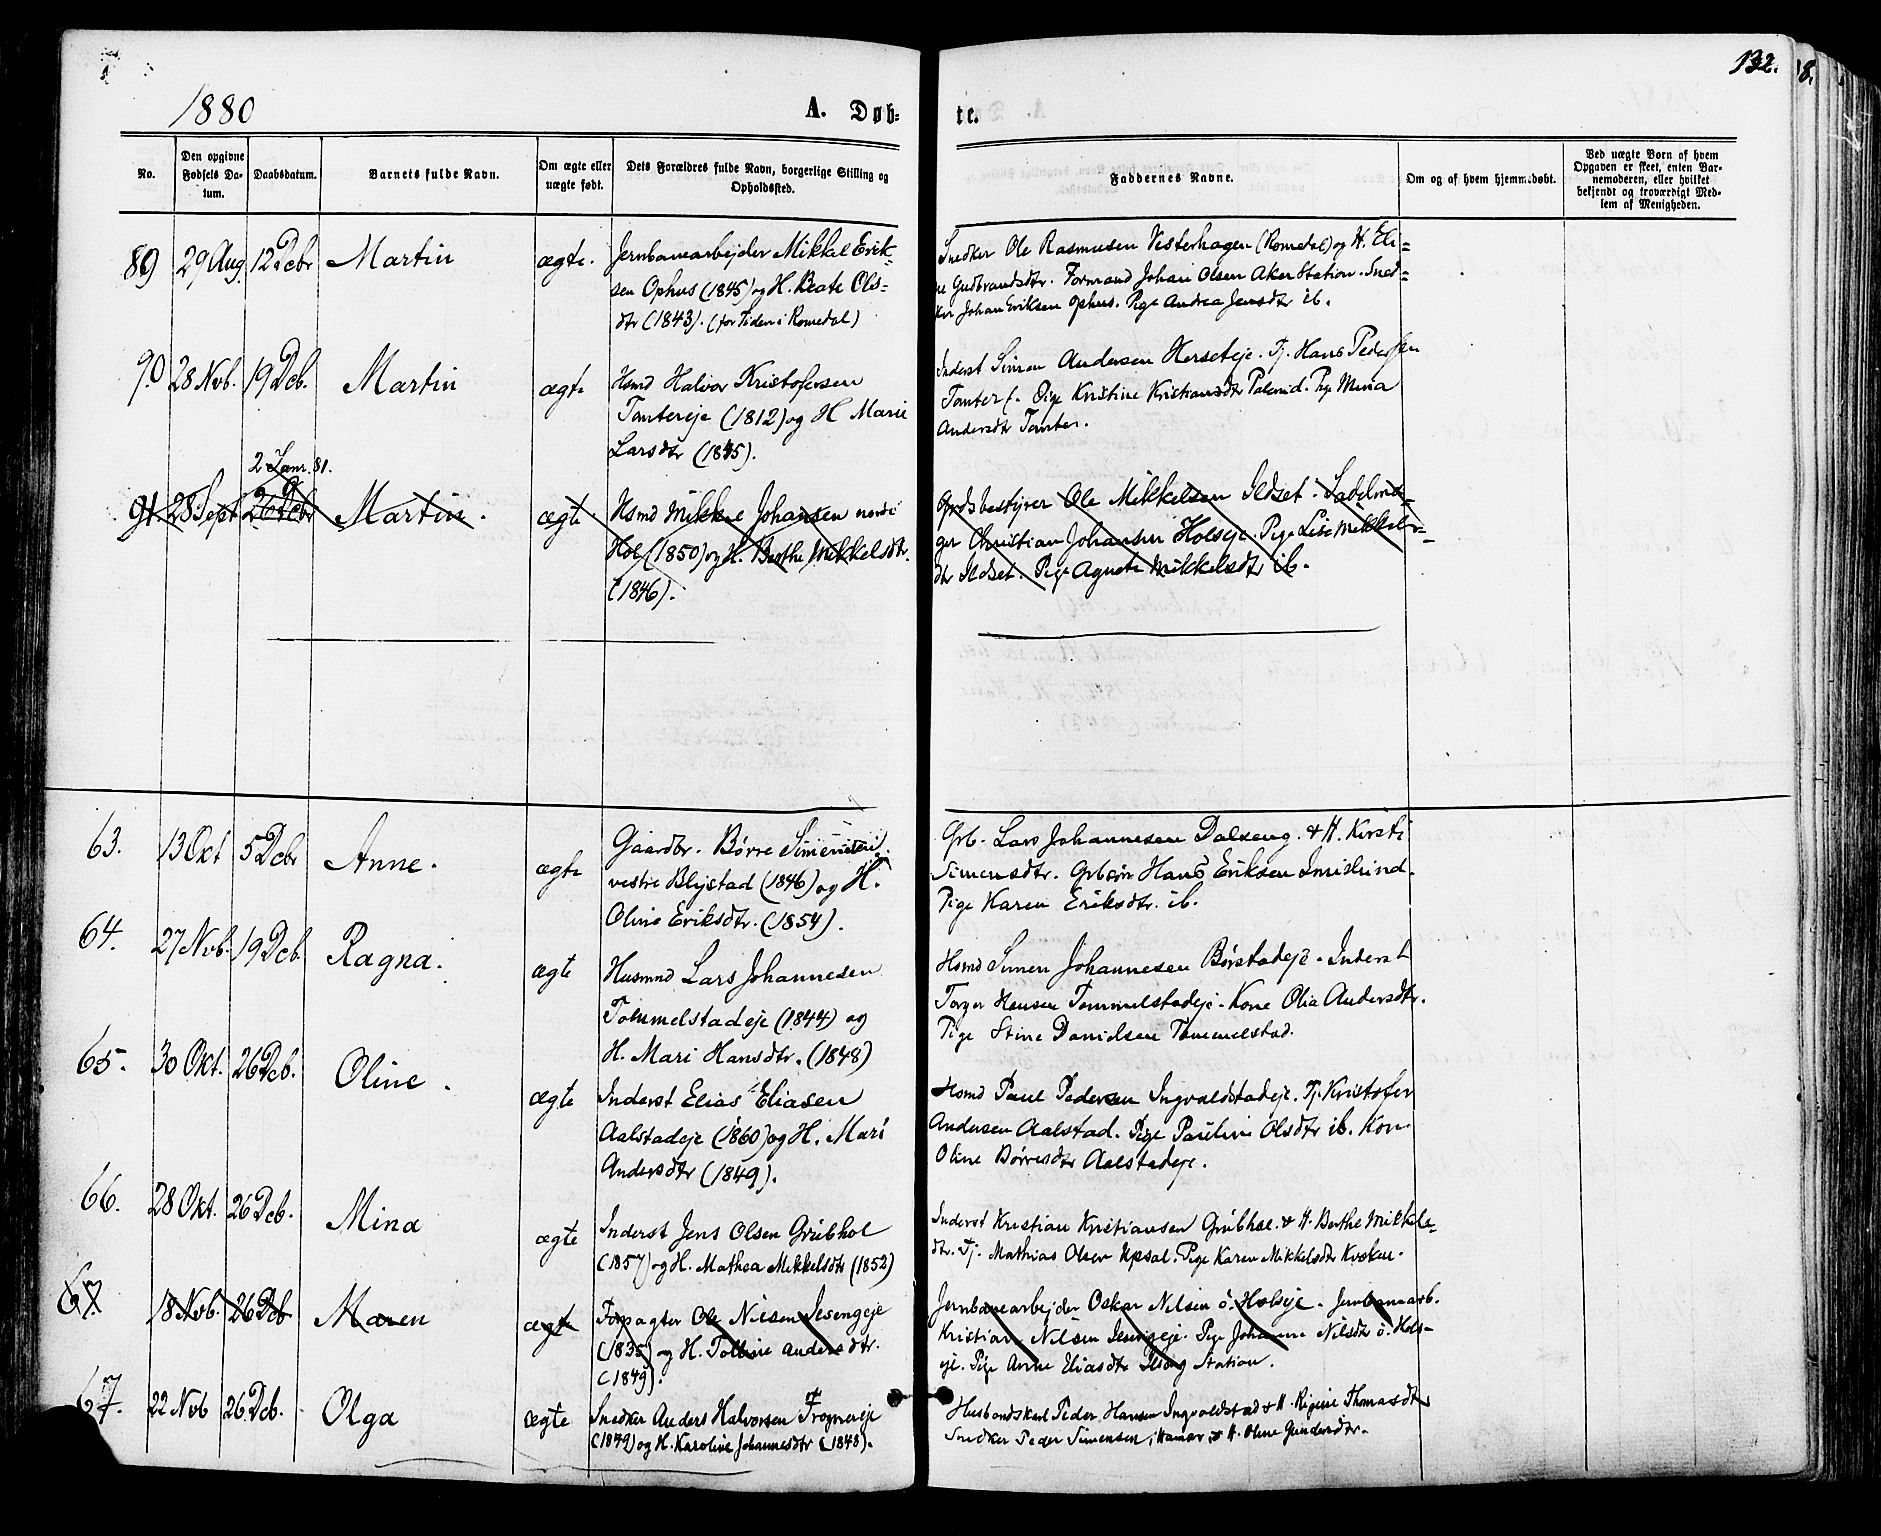 132.
8.
1880
A. Døb=
te.
No.
Den opgivne Fødsels Datum.
Daabsdatum.
Barnets fulde Navn.
Om ægte eller uægte født.
Dets Forældres fulde Navn, borgerlige Stilling og Opholdssted.
Faddernes Navne.
Om og af hvem hjemmedøbt.
Ved uægte Børn af hvem Opgaven er skeet, enten Barnemoderen, eller hvilket bekjendt og troværdigt Medlem af Menigheden.
89 29 Aug. 12 Dcbr Martin ægte.
Jernbanearbejder Mikkel Erik-
sen Ophus (1845) og H. Beate Ols-
dtr (1843). (for Tiden i Romedal)
Snedker Ole Rasmusen Vesterhagen (Romedal) og H. Eli=
ne Gudbrandsdtr. Formand Johan Olsen Aker Station. Sned=
ker Johan Eriksen Ophus. Pige Andrea Jensdtr ib.
90 28 Nvb. 19 Dcb. Martin ægte
Hsmd Halvor Kristofersen
Tomtereje (1812) og H Marie
Larsdtr (1845).
Inderst Simen Andersen Herseteje. Tj. Hans Pedersen
Tomter. Pige Kristine Kristiansdtr. Pige Mina
Andersdtr Tomter.
2 Janr. 81.
91. 28 Sept 26 Dcbr Martin. ægte
Hsmd Mikkel Johansen nordi
Hol (1850) og H. Berthe Mikkelsdtr.
(1846).
Grdsbestyrer Ole Mikkelsen Ildset. Sadelma-
ger Christian Johansen Holseje. Pige Lise Mikkels-
dtr Ildset. Pige Agnete Mikkelsdtr ib.
63. 13 Okt 5 Dcbr Anne. ægte
Gaardbr. Børre Simensen
vestre Blystad (1846) og H.
Oline Eriksdtr. (1854).
Grb. Lars Johannesen Dalseng. & H. Kirsti
Simensdtr. Grbsøn Hans Eriksen Imislund.
Pige Karen Eriksdtr. ib.
64. 27 Nvb. 19 Dcb. Ragna. ægte
Husmnd Lars Johannesen
Tommelstadeje (1844) og
H. Mari Hansdtr. (1848)
Hsmd Simen Johannesen Børstadeje. Inderst
Torger Hansen Tommelstadeje. Kone Olia Andersdtr.
Pige Stine Danielsen Tommelstad.
65. 30 Okt. 26 Dcb. Oline. ægte
Inderst Elias Eliasen
Aalstadeje (1860) og H. Mari
Andersdtr (1849).
Hsmd Paul Pedersen Ingvaldstadeje. Tj. Kristofer
Andersen Aalstad. Pige Pauline Olsdtr ib. Kone
Oline Børresdtr Aalstadeje.
66. 28 Okt. 26 Dcb. Mina ægte
Inderst Jens Olsen Grubhol
(1857) og H. Mathea Mikkelsdtr (1852)
Inderst Kristian Kristiansen Grubhol. & H. Berthe Mikkels-
dtr. Tj. Mathias Olsen Upsal. Pige Karen Mikkelsdtr
67. 18 Nvb. 26 Dcb. Maren ægte
Forpagter Ole Nilsen Jesengeje
(1835) og H. Tolline Andersdtr.
(1849).
Jernbanearbejder Oskar Nilsen ö. Holseje. Jernbanearb.
Kristian Nilsen Jesengeje. Pige Johanne Nilsdtr ö. Hols-
eje. Pige Anne Eliasdtr Ilseng Station.
67. 22 Nvb 26 Dcb. Olga ægte
Snedker Anders Halvorsen Frognereje
(1849) og H. Karoline Johannesdtr (1848).
Husbondskarl Peder Hansen Ingvaldstad & H. Regine Thomasdtr
Snedker Peder Simensen i Hamar & H. Oline Gundersdtr.